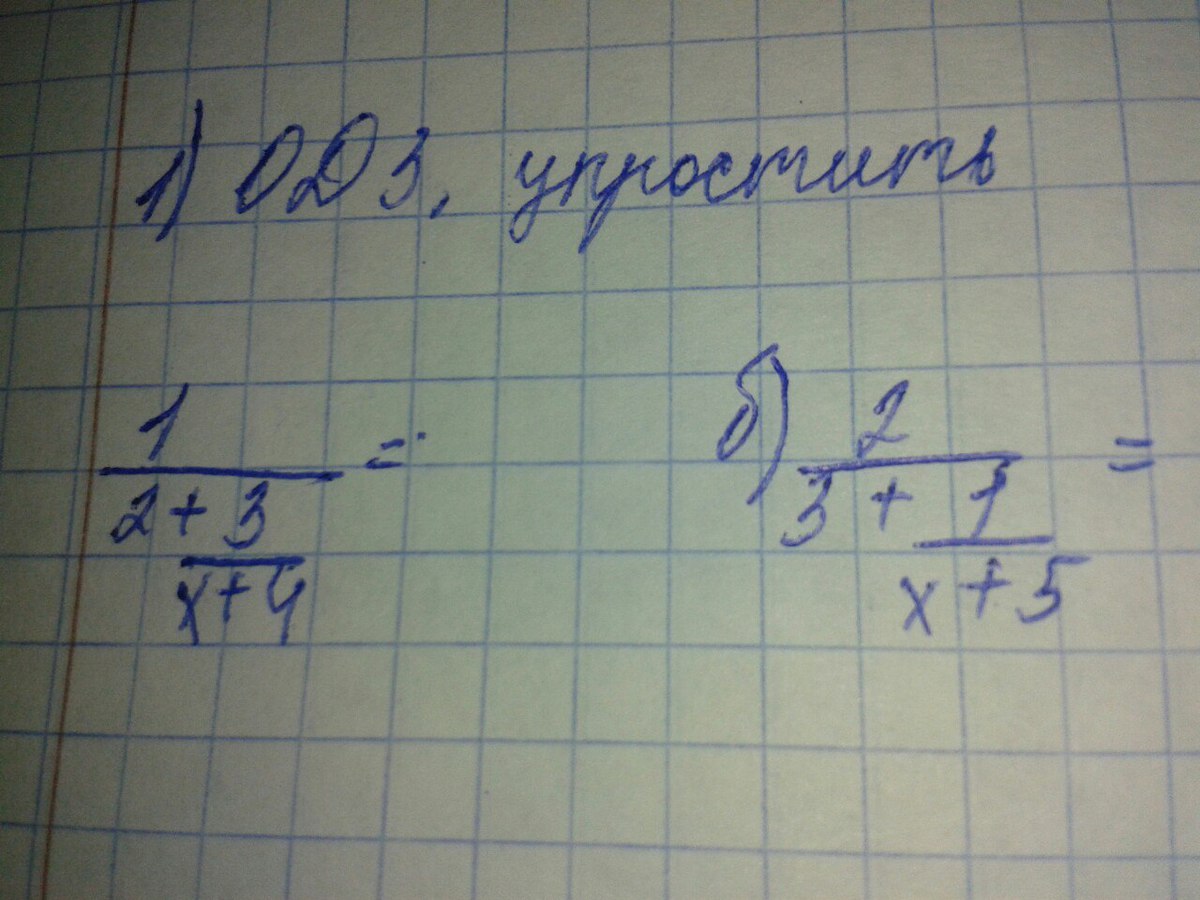 1) ОДЗ, упростить
1 / (2 + 3 / (x+4)) =
б) 2 / (3 + 1 / (x+5)) =